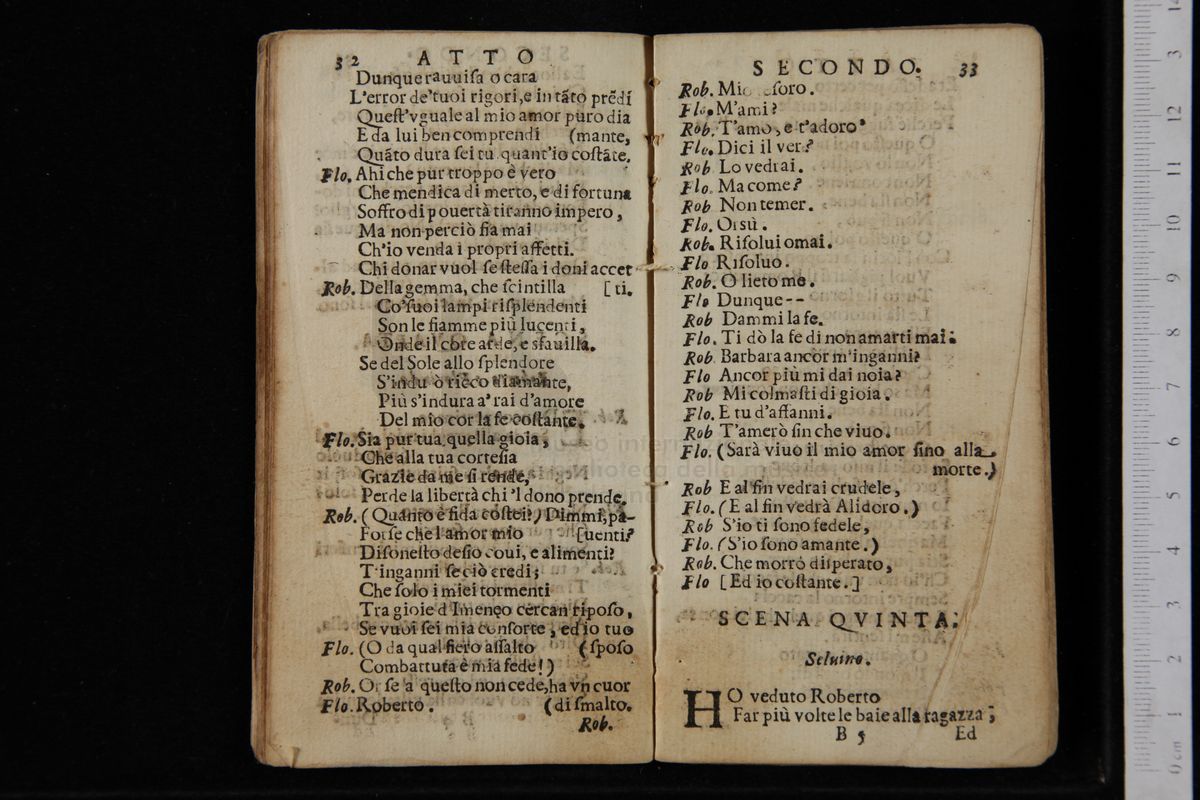 32 ATTO
Dunque rauuiſa o cara
L'error de'tuoi rigori, e in tãto prẽdi
Queſt'vguale al mio amor puro dia
E da lui ben comprendi (mante,
Quãto dura ſei tu quant'io coſtãte.
Flo. Ahi che pur troppo è vero
Che mendica di merto, e di fortuna
Soffro di pouertà tiranno impero,
Ma non perciò fia mai
Ch'io venda i propri affetti.
Chi donar vuol ſe ſteſſa i doni accet
Rob. Della gemma, che ſcintilla [ti.
Co'ſuoi lampi riſplendenti
Son le fiamme più lucenti,
Onde il core arde, e sfauilla.
Se del Sole allo ſplendore
S'indu ò ricco diamante,
Più s'indura a' rai d'amore
Del mio cor la fe coſtante.
Flo. Sia pur tua quella gioia,
Che alla tua corteſia
Grazie da me ſi rende,
Perde la libertà chi 'l dono prende.
Rob. (Quanto è fida coſtei!) Dimmi, pa-
Forſe che l'amor mio [uenti?
Diſoneſto deſio coui, e alimenti?
T'inganni ſe ciò credi;
Che ſolo i miei tormenti
Tra gioie d'Imeneo cercan ripoſo,
Se vuoi ſei mia conſorte, ed io tuo
Flo. (O da qual fiero aſſalto (ſpoſo
Combattuta è mia fede!)
Rob. Or ſe a queſto non cede, ha vn cuor
Flo. Roberto. (di ſmalto.
Rob.
SECONDO. 33
Rob. Mio eſoro.
Flo. M'ami?
Rob. T'amo, e t'adoro
Flo. Dici il ver?
Rob Lo vedrai.
Flo. Ma come?
Rob Non temer.
Flo. Orsù.
Rob. Riſolui omai.
Flo Riſoluo.
Rob. O lieto me.
Flo Dunque--
Rob Dammi la fe.
Flo. Ti dò la fe di non amarti mai.
Rob. Barbara ancor m'inganni?
Flo Ancor più mi dai noia?
Rob Mi colmaſti di gioia.
Flo. E tu d'affanni.
Rob T'amerò ſin che viuo.
Flo. (Sarà viuo il mio amor ſino alla
morte.)
Rob E al fin vedrai crudele,
Flo. (E al fin vedrà Alidoro.)
Rob S'io ti ſono fedele,
Flo. (S'io ſono amante.)
Rob. Che morrò diſperato,
Flo [Ed io coſtante.]
SCENA QVINTA.
Seluino.
HO veduto Roberto
Far più volte le baie alla ragazza;
B 5 Ed